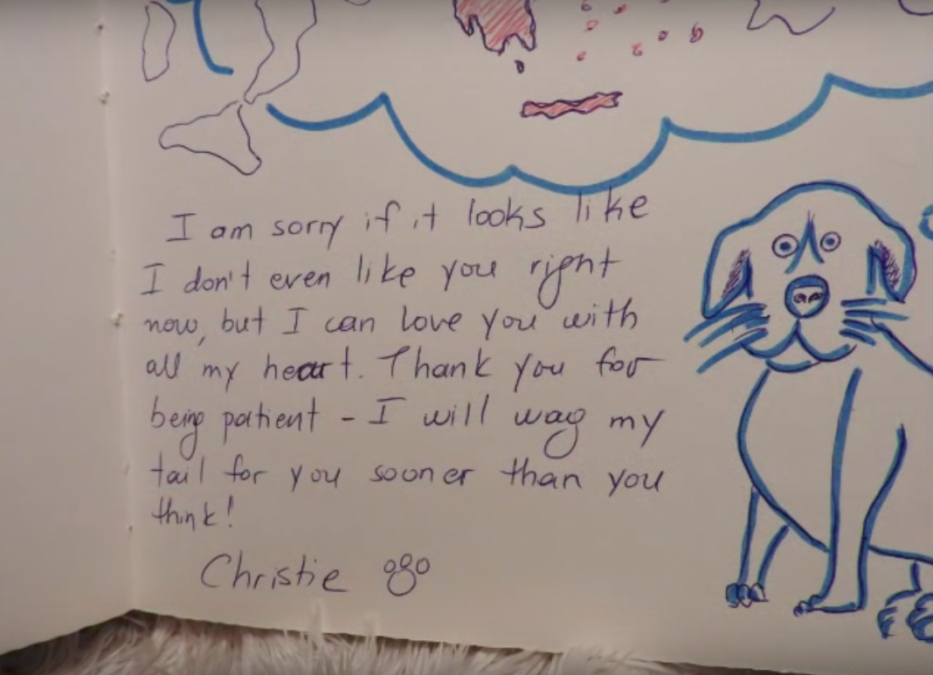 I am sorry if it looks like
I don't even like you right
now, but I can love you with
all my heart. Thank you for
being patient - I will wag my
tail for you sooner than you
think!
Christie